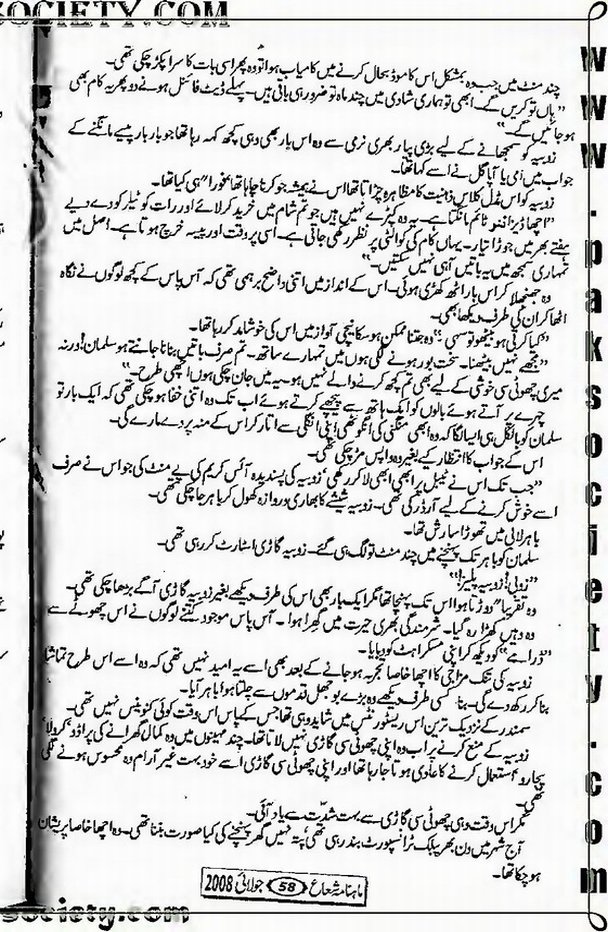 SOCIETY.COM
چند منٹ میں جب وہ بمشکل اس کا موڈ بحال کرنے میں کامیاب ہوا تو وہ پھر اسی بات کا سرا پکڑ چکی تھی۔
"ہاں تو کریں گے۔ ابھی تو ہماری شادی میں چند ماہ تو ضرور ہی باقی ہیں۔ پہلے ڈیٹ فائنل ہونے دو پھر یہ کام بھی
ہو جائیں گے۔"
زوبیہ کو سمجھانے کے لیے بڑی پیار بھری نرمی سے وہ اس بار بھی وہی کچھ کہہ رہا تھا جو بار بار پیسے مانگنے کے
جواب میں امی یا آپا گل نے اسے کہا تھا۔
زوبیہ کو اس مڈل کلاس ذہانیت کا مظاہرہ چڑاتا تھا اس نے ہمیشہ جو کرنا چاہا تھا "فورا" ہی کیا تھا۔
"اچھا ڈیزائنر ٹائم مانگتا ہے۔ یہ وہ کپڑے نہیں ہیں جو تم شام میں خرید کر لائے اور رات کو ٹیلر کو دے دیے
ہفتے بھر میں جوڑا تیار۔ یہاں کام کی کوالٹی پر نظر رکھی جاتی ہے۔ اسی پر وقت اور پیسہ خرچ ہوتا ہے۔ اصل میں
تمہاری سمجھ میں یہ باتیں آ ہی نہیں سکتیں۔"
وہ جھنجھلا کر اس بار اٹھ کھڑی ہوئی۔ اس کے انداز میں اتنی واضح برہمی تھی کہ آس پاس کے کچھ لوگوں نے نگاہ
اٹھا کر ان کی طرف دیکھا بھی۔
"کیا کرتی ہو بیٹھو تو سہی۔" وہ جتنا ممکن ہو سکا نیچی آواز میں اس کی خوشامد کر رہا تھا۔
"مجھے نہیں بیٹھنا۔ سخت بور ہونے لگی ہوں میں تمہارے ساتھ۔ تم صرف باتیں بنانا جانتے ہو سلمان! ورنہ
میری چھوٹی سی خوشی کے لیے بھی تم کچھ کرنے والے نہیں ہو۔ یہ میں جان چکی ہوں اچھی طرح۔"
چہرے پر آتے ہوئے بالوں کو ایک ہاتھ سے پیچھے کرتے ہوئے اب تک وہ اتنی خفا ہو چکی تھی کہ ایک بار تو
سلمان کو بالکل ہی ایسا لگا کہ وہ ابھی منگنی کی انگوٹھی اپنی انگلی سے اتار کر اس کے منہ پر دے مارے گی۔
اس کے جواب کا انتظار کیے بغیر وہ واپس مڑ چکی تھی۔
"جب تک اس نے ٹیبل پر ابھی ابھی لا کر رکھی، زوبیہ کی پسندیدہ آئس کریم کی پے منٹ کی جو اس نے صرف
اسے خوش کرنے کے لیے آرڈر کی تھی۔ زوبیہ شیشے کا بھاری دروازہ کھول کر باہر جا چکی تھی۔
باہر لابی میں تھوڑا سا رش تھا۔
سلمان کو باہر تک پہنچنے میں چند منٹ تو لگ ہی گئے۔ زوبیہ گاڑی اسٹارٹ کر رہی تھی۔
"زوبی! زوبیہ پلیز!"
وہ تقریبا" دوڑتا ہوا اس تک پہنچا تھا مگر ایک بار بھی اس کی طرف دیکھے بغیر زوبیہ گاڑی آگے بڑھا چکی تھی۔
وہ وہیں کھڑا رہ گیا۔ شرمندگی بھری حیرت میں گھرا ہوا۔ آس پاس موجود کتنے لوگوں نے اس چھوٹے سے
"ڈرامے" کو دیکھ کر اپنی مسکراہٹ کو دبایا۔
زوبیہ کی تنک مزاجی کا اچھا خاصا تجربہ ہو جانے کے بعد بھی اسے یہ امید نہیں تھی کہ وہ اسے اس طرح تماشا
بنا کر رکھ دے گی۔ بنا کسی طرف دیکھے وہ بڑے بوجھل قدموں سے چلتا ہوا باہر آیا۔
سمندر کے نزدیک ترین اس ریسٹورنٹس میں شاید وہی تھا جس کے پاس اس وقت کوئی کنوینس نہیں تھی۔
زوبیہ کے منع کرنے پر اب وہ اپنی چھوٹی سی گاڑی نہیں لاتا تھا۔ چند مہینوں میں وہ کمال گھرانے کی پراڈو، کرولا،
پجارو استعمال کرنے کا عادی ہوتا جا رہا تھا اور اپنی چھوٹی سی گاڑی اسے خود بہت غیر آرام دہ محسوس ہونے لگی
تھی۔
مگر اس وقت وہی چھوٹی سی گاڑی اسے بہت شدت سے یاد آئی۔
آج شہر میں دن بھر پبلک ٹرانسپورٹ بند رہی تھی، پتہ نہیں گھر پہنچنے کی کیا صورت بننا تھی۔ وہ اچھا خاصا پریشان
ہو چکا تھا۔
ماہنامہ شعاع 58 جولائی 2008
society.com
www.paksociety.com